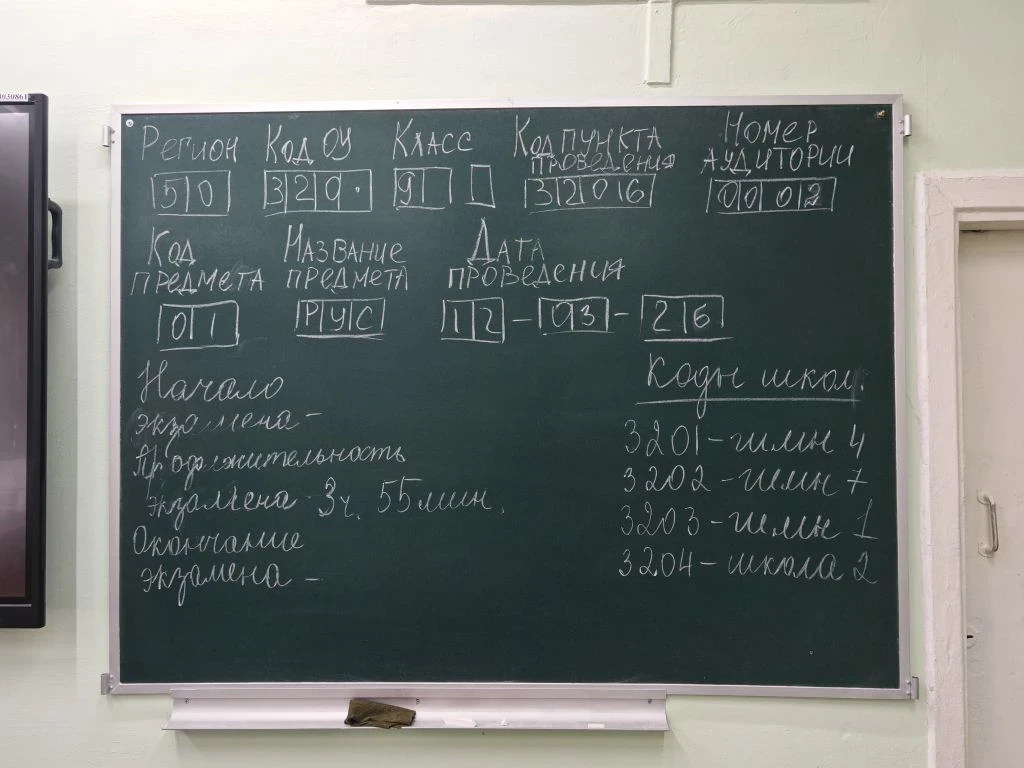 030861
Регион Код ОУ Класс Код пункта проведения Номер аудитории
50 320· 9 3206 0002
Код предмета Название предмета Дата проведения
01 РУС 12 – 03 – 26
Начало
экзамена –
Продолжительность
экзамена – 3ч. 55мин.
Окончание
экзамена –
Коды школ.
3201 – гимн 4
3202 – гимн 7
3203 – гимн 1
3204 – школа 2